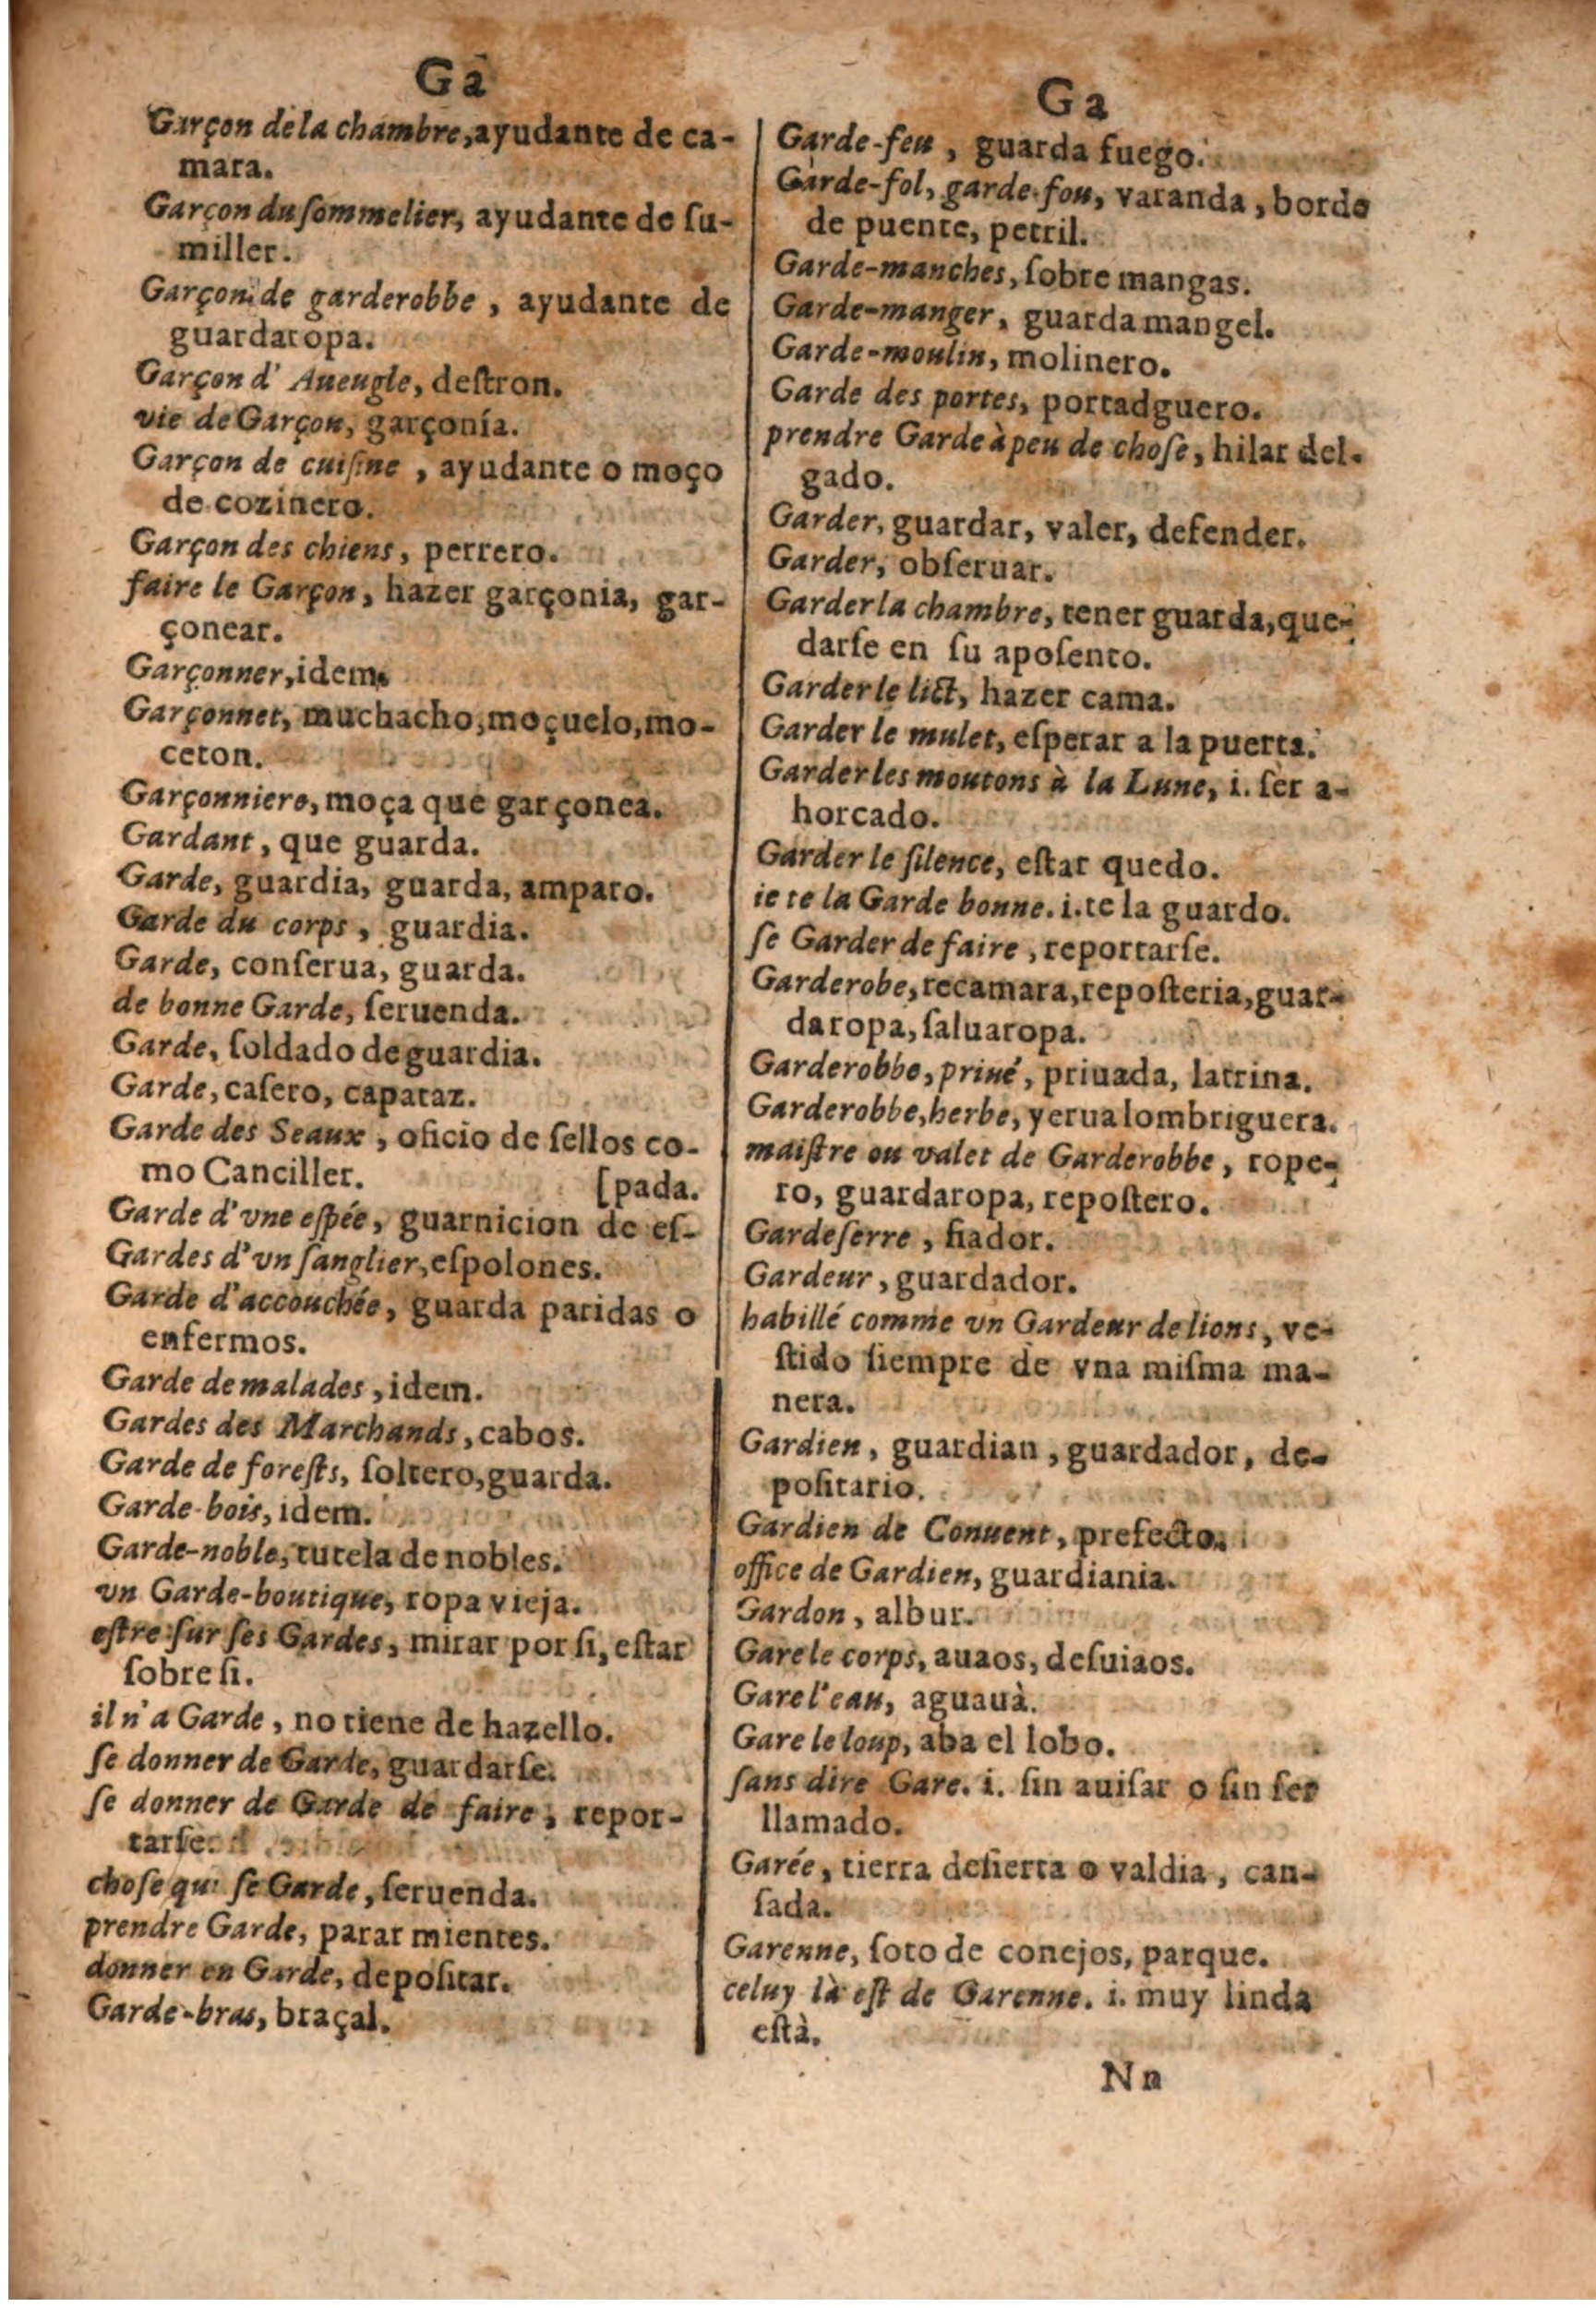 Ga
Garçon de la chambre, ayudante de ca-
mara.
Garçon du ſommelier, ayudante de ſu-
miller.
Garçon de garderobbe, ayudante de
guardaropa.
Garçon d'Aueugle, deſtron.
vie de Garçon, garçonía.
Garçon de cuiſine, ayudante o moço
de cozinero.
Garçon des chiens, perrero.
faire le Garçon, hazer garçonia, gar-
çonear.
Garçonner, idem.
Garçonnet, muchacho, moçuelo, mo-
ceton.
Garçonniere, moça que garçonea.
Gardant, que guarda.
Garde, guardia, guarda, amparo.
Garde du corps, guardia.
Garde, conſerua, guarda.
de bonne Garde, ſeruenda.
Garde, ſoldado de guardia.
Garde, caſero, capataz.
Garde des Seaux, oficio de ſellos co-
mo Canciller. [pada.
Garde d'vne eſpée, guarnicion de eſ-
Gardes d'vn ſanglier, eſpolones.
Garde d'accouchée, guarda paridas o
enfermos.
Garde de malades, idem.
Gardes des Marchands, cabos.
Garde de foreſts, ſoltero, guarda.
Garde-bois, idem.
Garde-noble, tutela de nobles.
vn Garde-boutique, ropa vieja.
eſtre ſur ſes Gardes, mirar por ſi, eſtar
ſobre ſi.
il n'a Garde, no tiene de hazello.
ſe donner de Garde, guardarſe.
ſe donner de Garde de faire, repor-
tarſe.
choſe qui ſe Garde, ſeruenda.
prendre Garde, parar mientes.
donner en Garde, depoſitar.
Garde-bras, braçal.
Ga
Garde-feu, guarda fuego.
Garde-fol, garde-fou, varanda, borde
de puente, petril.
Garde-manches, ſobre mangas.
Garde-manger, guarda mangel.
Garde-moulin, molinero.
Garde des portes, portadguero.
prendre Garde à peu de choſe, hilar del-
gado.
Garder, guardar, valer, defender.
Garder, obſeruar.
Garder la chambre, tener guarda, que-
darſe en ſu apoſento.
Garder le lict, hazer cama.
Garder le mulet, eſperar a la puerta.
Garder les moutons à la Lune, i. ſer a-
horcado.
Garder le ſilence, eſtar quedo.
ie te la Garde bonne. i. te la guardo.
ſe Garder de faire, reportarſe.
Garderobe, recamara, repoſteria, guar-
daropa, ſaluaropa.
Garderobbe, priué, priuada, latrina.
Garderobbe, herbe, yerua lombriguera.
maiſtre ou valet de Garderobbe, rope-
ro, guardaropa, repoſtero.
Gardeſerre, fiador.
Gardeur, guardador.
habillé comme vn Gardeur de lions, ve-
ſtido ſiempre de vna miſma ma-
nera.
Gardien, guardian, guardador, de-
poſitario.
Gardien de Conuent, prefecto.
office de Gardien, guardiania.
Gardon, albur.
Gare le corps, auaos, deſuiaos.
Gare l'eau, aguauà.
Gare le loup, aba el lobo.
ſans dire Gare. i. ſin auiſar o ſin ſer
llamado.
Garée, tierra deſierta o valdia, can-
ſada.
Garenne, ſoto de conejos, parque.
celuy là eſt de Garenne. i. muy linda
eſtà.
Nn